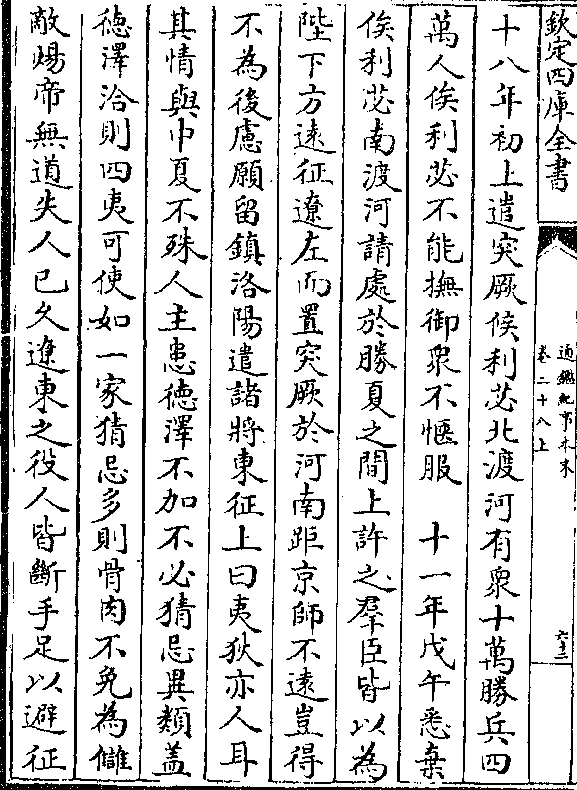 欽定四庫全書
通鑑紀事本末
卷二十八上
十八年初上遣突厥俟利苾北渡河有衆十萬勝兵四
萬人俟利苾不能撫御衆不愜服　十一年戊午悉棄
俟利苾南渡河請處於勝夏之間上許之羣臣皆以為
陛下方遠征遼左而置突厥於河南距京師不遠豈得
不為後慮願留鎮洛陽遣諸將東征上曰夷狄亦人耳
其情與中夏不殊人主患徳澤不加不必猜忌異類蓋
徳澤洽則四夷可使如一家猜忌多則骨肉不免為讎
敵煬帝無道失人已久遼東之役人皆斷手足以避征